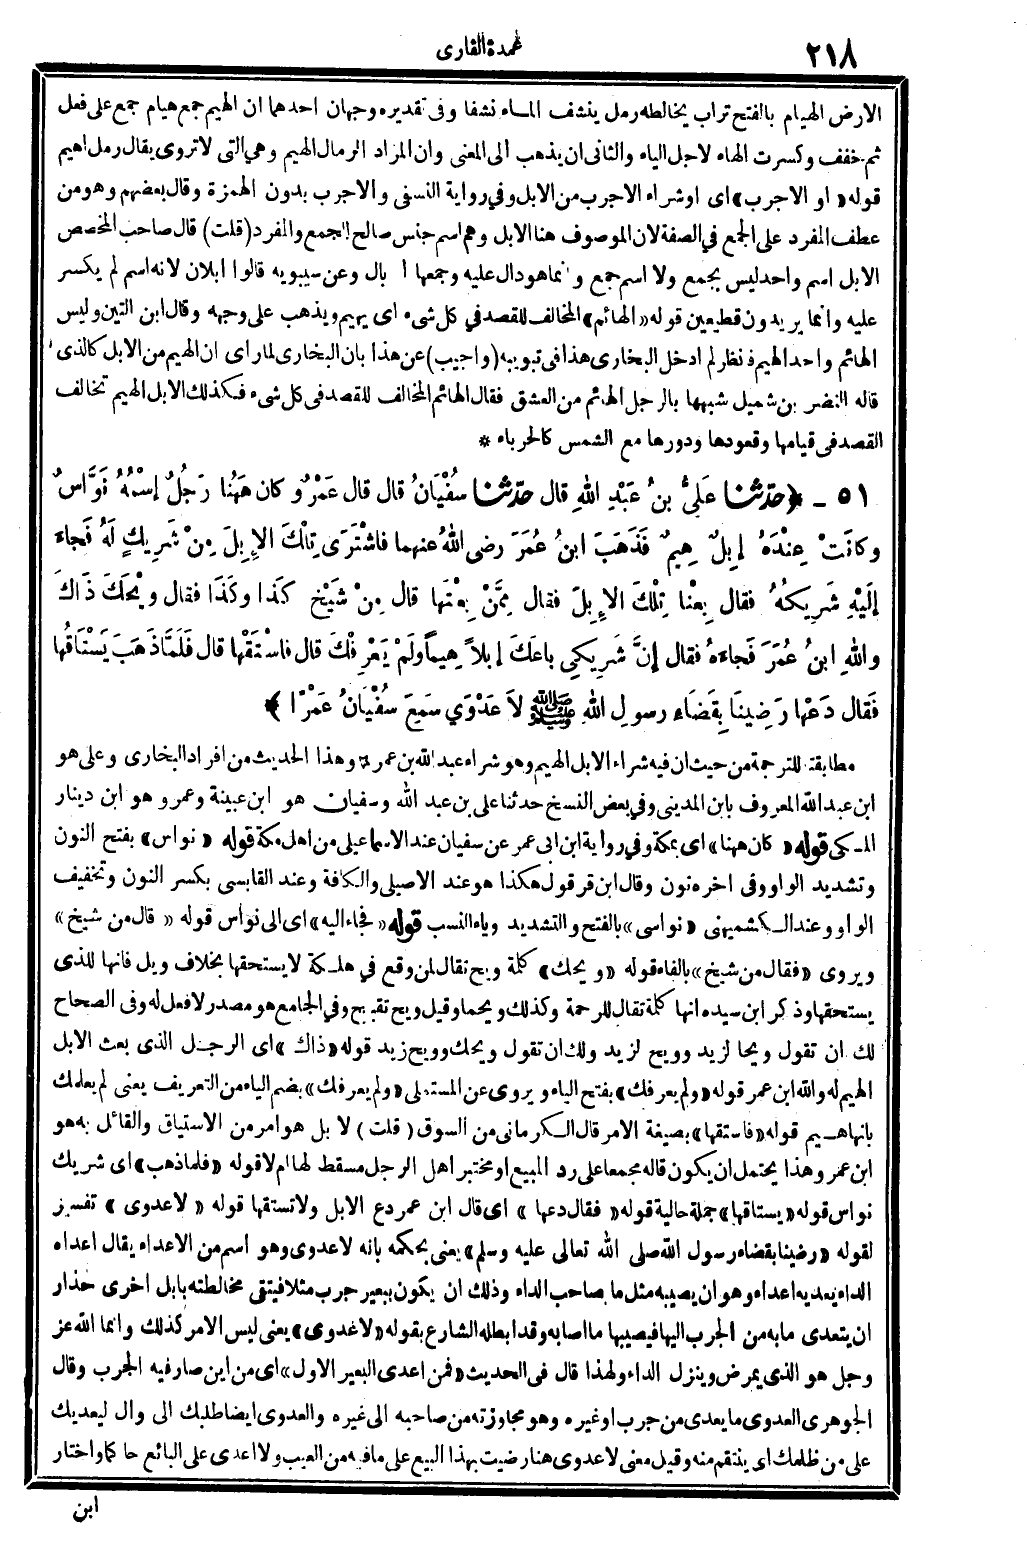 ٢١٨
عمدة القارى
الارض الهيام بالفتح تراب يخالطه رمل ينشف الماء نشفا وفى تقديره وجهان احدهما ان الهيم جمع هيام جمع على فعل
ثم خفف وكسرت الهاء لاجل الياء والثانى ان يذهب الى المعنى وان المراد الرمال الهيم وهي التى لا تروى يقال رمل اهيم
قوله « او الاجرب » اى او شراء الاجرب من الابل وفي رواية النسفى والاجرب بدون الهمزة وقال بعضهم وهو من
عطف المفرد على الجمع في الصفة لان الموصوف هنا الابل وهو اسم جنس صالح للجمع والمفرد (قلت) قال صاحب المخصص
الابل اسم واحد ليس بجمع ولا اسم جمع وانما هو دال عليه وجمعها آبال وعن سيبويه قالوا ابلان لانه اسم لم يكسر
عليه وانما يريدون قطيعين قوله « الهائم » المخالف للقصد في كل شىء اى يهيم ويذهب على وجهه وقال ابن التين وليس
الهائم واحد الهيم فانظر لم ادخل البخارى هذا فى تبويبه (واجيب) عن هذا بان البخارى لما راى ان الهيم من الابل كالذى
قاله النضر بن شميل شبهها بالرجل الهائم من العشق فقال الهائم المخالف للقصد فى كل شىء فكذلك الابل الهيم تخالف
القصد فى قيامها وقعودها ودورها مع الشمس كالحرباء *
٥١ ـ ﴿ حدّثنا عَلِيُّ بنُ عَبْدِ اللهِ قال حدّثنا سُفْيَانُ قال قال عَمْرٌو كان هَهُنا رَجُلٌ إسْمُهُ نَوَّاسٌ
وكانَتْ عِنْدَهُ إبِلٌ هِيمٌ فَذَهَبَ ابنُ عُمَرَ رضى اللهُ عنهما فاشْتَرَى تِلْكَ الإبِلَ مِنْ شَرِيكٍ لَهُ فَجاءَ
إلَيْهِ شَرِيكُهُ فقال بِعْنا تِلْكَ الإبِلَ فقال مِمَّنْ بِعْتَها قال مِنْ شَيْخٍ كَذَا وكَذَا فقال ويْحَكَ ذَاكَ
واللهِ ابنُ عُمَرَ فَجاءَهُ فقال إنَّ شَرِيكِي باعَكَ إبِلاً هِيماً ولَمْ يَعْرِفْكَ قال فاسْتَقْها قال فَلَمَّا ذَهَبَ يَسْتَاقُها
فَقال دَعْها رَضِينَا بِقَضَاءِ رسولِ اللهِ ﷺ لاَ عَدْوَي سَمِعَ سُفْيَانُ عَمْرًا ﴾
مطابقته للترجمة من حيث ان فيه شراء الابل الهيم وهو شراء عبد الله بن عمر * وهذا الحديث من افراد البخارى وعلى هو
ابن عبدالله المعروف بابن المدينى وفي بعض النسخ حدثنا على بن عبد الله وسفيان هو ابن عيينة وعمرو هو ابن دينار
المكى قوله « كان ههنا » اى بمكة وفي رواية ابن ابى عمر عن سفيان عند الاسماعيلى من اهل مكة قوله « نواس » بفتح النون
وتشديد الواو وفى اخره نون وقال ابن قرقول هكذا هو عند الاصيلى والكافة وعند القابسى بكسر النون وتخفيف
الواو وعند الكشميهنى « نواسى » بالفتح والتشديد وياء النسب قوله « فجاء اليه » اى الى نواس قوله « قال من شيخ »
ويروى « فقال من شيخ » بالفاء قوله « ويحك » كلمة ويح تقال لمن وقع في هلكة لا يستحقها بخلاف ويل فانها للذى
يستحقها وذكر ابن سيده انها كلمة تقال للرحمة وكذلك ويحما وقيل ويح تقبيح وفي الجامع هو مصدر لا فعل له وفى الصحاح
لك ان تقول ويحا لزيد وويح لزيد ولك ان تقول ويحك وويح زيد قوله « ذاك » اى الرجل الذى بعت الابل
الهيم له والله ابن عمر قوله « ولم يعرفك » بفتح الياء ويروى عن المستملى « ولم يعرفك » بضم الياء من التعريف يعنى لم يعلمك
بانها هيم قوله « فاستقها » بصيغة الامر قال الكرمانى من السوق (قلت) لا بل هو امر من الاستياق والقائل به هو
ابن عمر وهذا يحتمل ان يكون قاله مجمعا على رد المبيع او مختبر اهل الرجل مسقط لها ام لا قوله « فلما ذهب » اى شريك
نواس قوله « يستاقها » جملة حالية قوله « فقال دعها » اى قال ابن عمر دع الابل ولا تستقها قوله « لا عدوى » تفسير
لقوله « رضينا بقضاء رسول الله صلى الله تعالى عليه وسلم » يعنى بحكمه بانه لا عدوى وهو اسم من الاعداء يقال اعداه
الداء يعديه اعداء وهو ان يصيبه مثل ما بصاحب الداء وذلك ان يكون ببعير جرب مثلا فيتقى مخالطته بابل اخرى حذار
ان يتعدى ما به من الجرب اليها فيصيبها ما اصابه وقد ابطله الشارع بقوله « لا عدوى » يعنى ليس الامر كذلك وانما الله عز
وجل هو الذى يمرض وينزل الداء ولهذا قال فى الحديث « فمن اعدى البعير الاول » اى من اين صار فيه الجرب وقال
الجوهرى العدوى ما يعدى من جرب او غيره وهو مجاوزته من صاحبه الى غيره والعدوى ايضا طلبك الى وال ليعديك
على من ظلمك اى ينتقم منه وقيل معنى لا عدوى هنا رضيت بهذا البيع على ما فيه من العيب ولا اعدى على البائع حاكما واختار
ابن